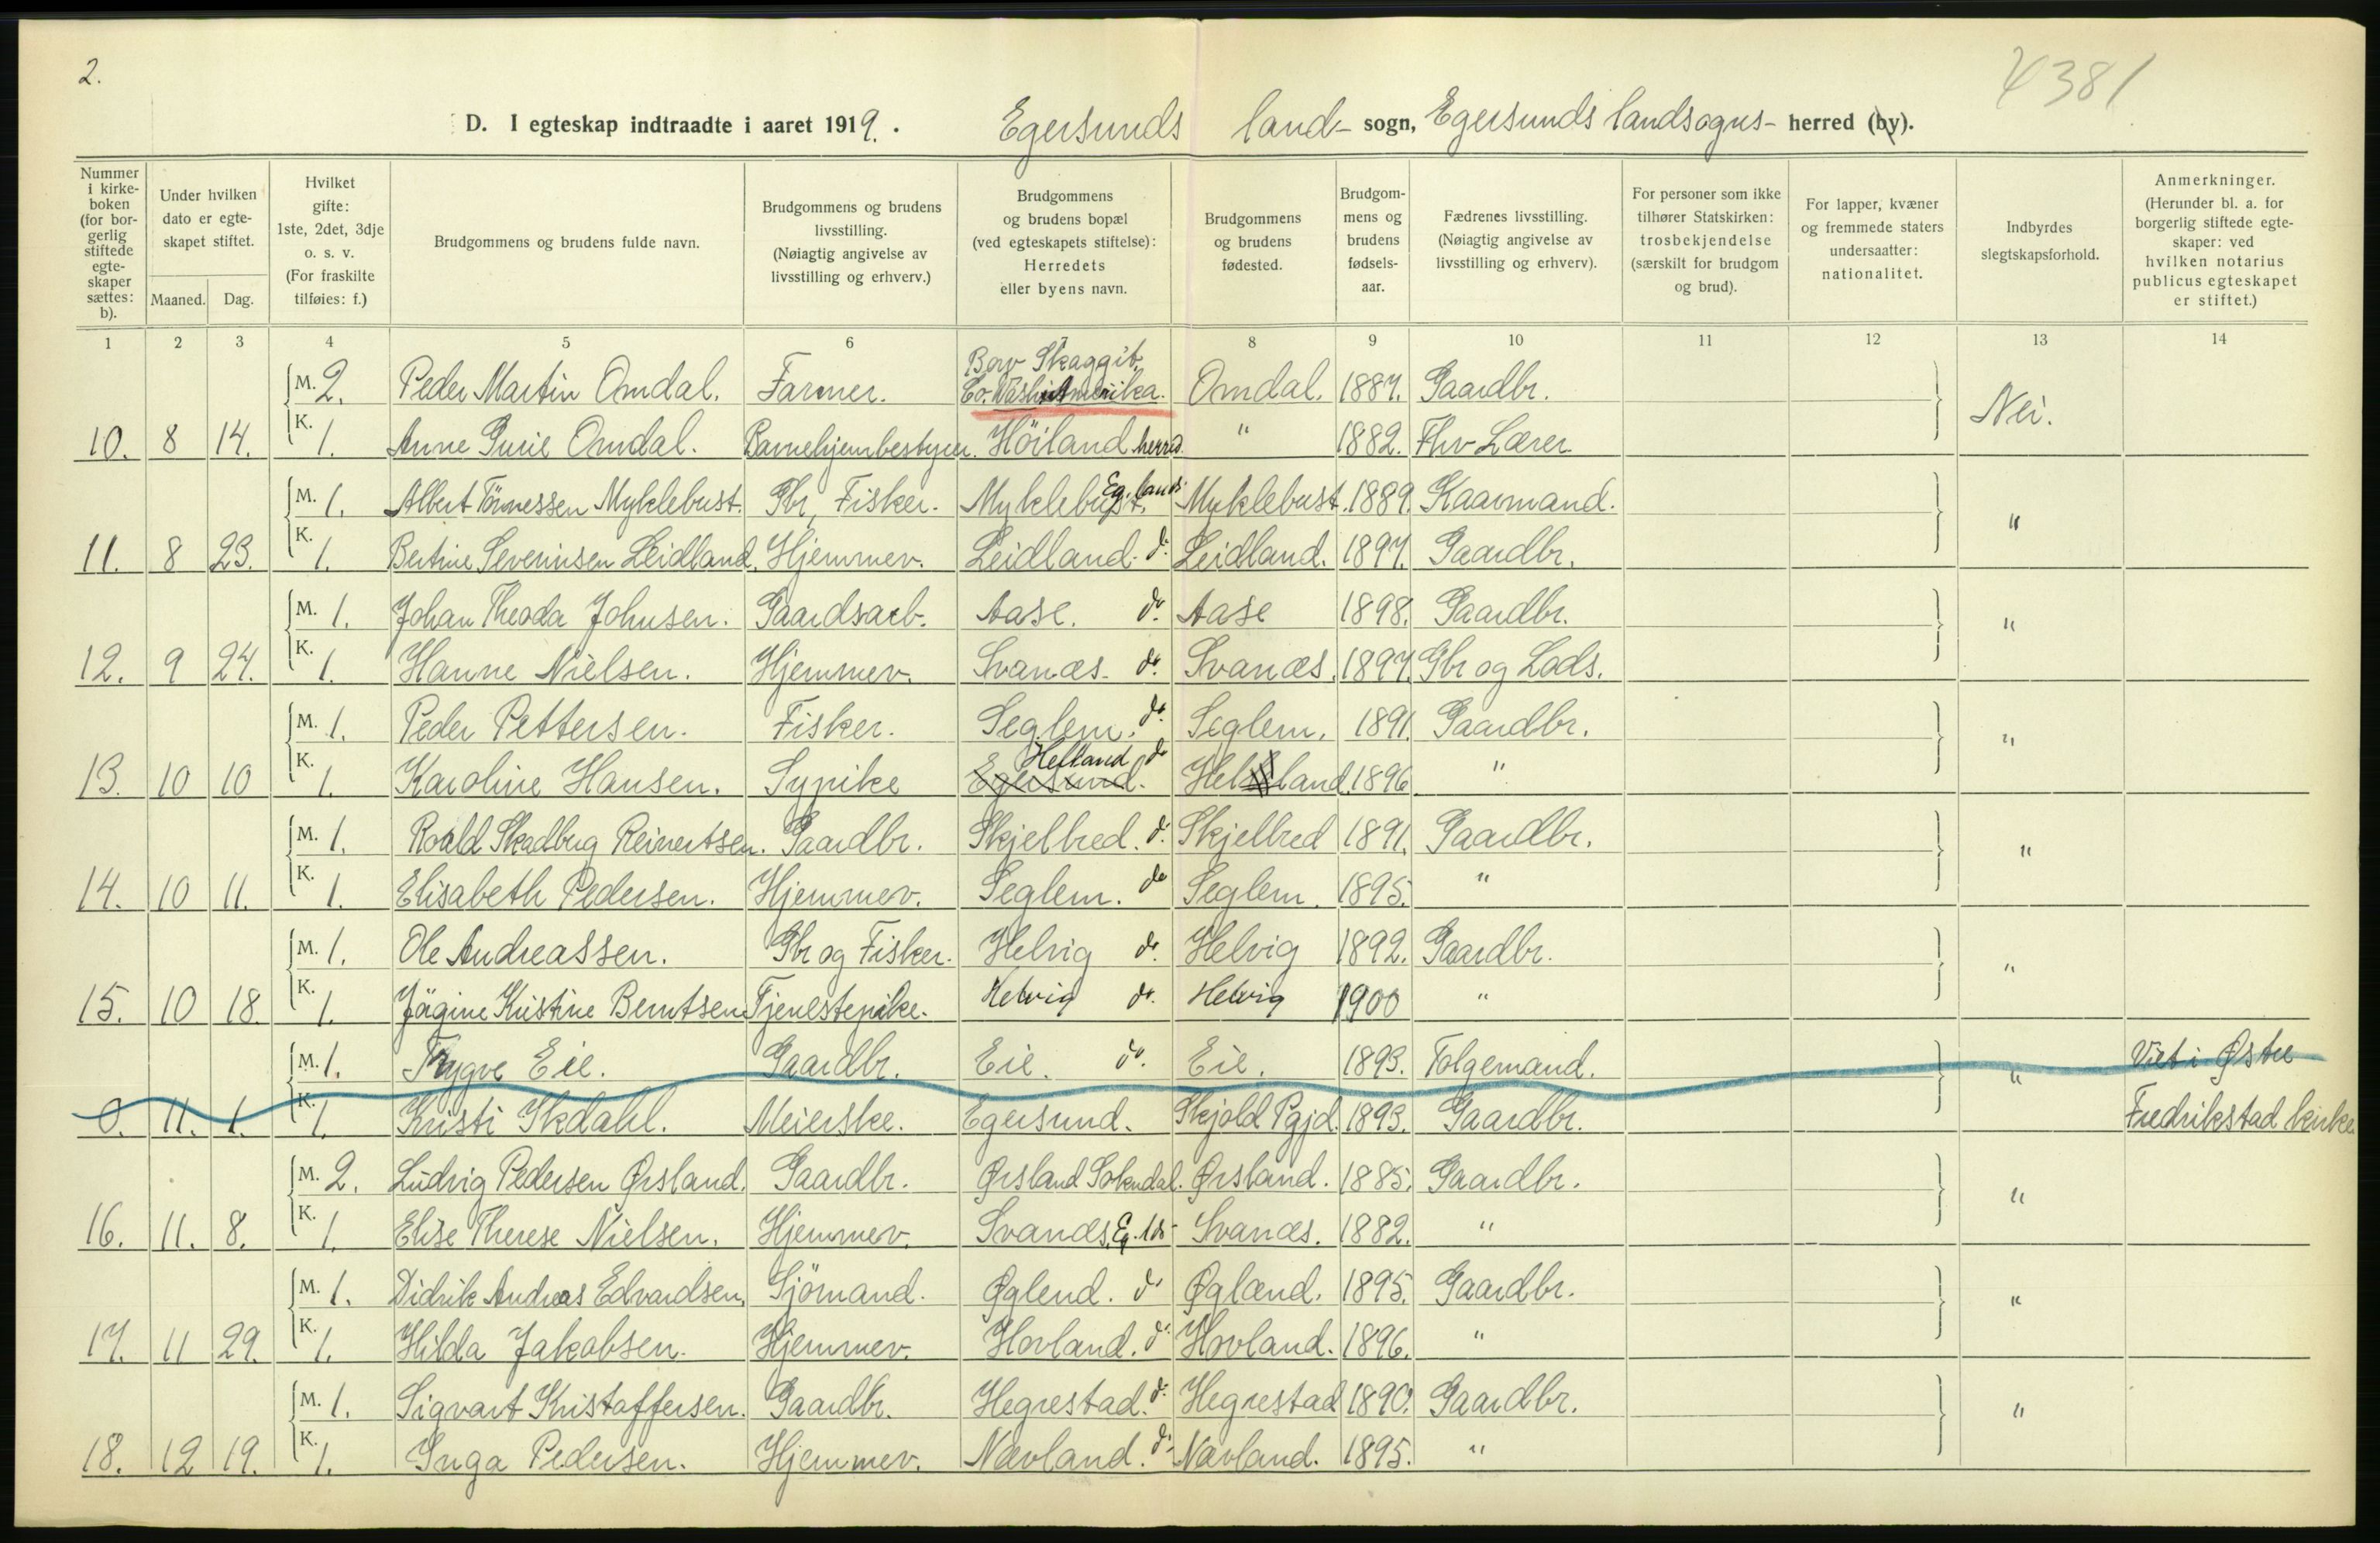 2.
4381
D. I egteskap indtraadte i aaret 1919. Egersunds land- sogn, Egersunds landsogns- herred (by).
Nummer i kirkeboken (for borgerlig stiftede egteskaper sættes: b).
Under hvilken dato er egteskapet stiftet.
Maaned. Dag.
Hvilket gifte: 1ste, 2det, 3dje o. s. v. (For fraskilte tilføies: f.)
Brudgommens og brudens fulde navn.
Brudgommens og brudens livsstilling. (Nøiagtig angivelse av livsstilling og erhverv.)
Brudgommens og brudens bopæl (ved egteskapets stiftelse): Herredets eller byens navn.
Brudgommens og brudens fødested.
Brudgommens og brudens fødselsaar.
Fædrenes livsstilling. (Nøiagtig angivelse av livsstilling og erhverv).
For personer som ikke tilhører Statskirken: trosbekjendelse (særskilt for brudgom og brud).
For lapper, kvæner og fremmede staters undersaatter: nationalitet.
Indbyrdes slegtskapsforhold.
Anmerkninger. (Herunder bl. a. for borgerlig stiftede egteskaper: ved hvilken notarius publicus egteskapet er stiftet.)
1 2 3 4 5 6 7 8 9 10 11 12 13 14
M. 2. Peder Martin Omdal. Farmer. Bow Skaggit Co. Wash. Amerika. Omdal. 1887. Gaardbr. Nei.
10. 8 14. K. 1. Anne Gurie Omdal. Barnehjembestyrer. Höiland herred. " 1882. Fhv Lærer
M. 1. Albert Tönnessen Myklebust. Gbr, Fisker. Myklebust. Eg. lands. Myklebust. 1889. Kaarmand. "
11. 8 23. K. 1. Bertine Severinsen Leidland. Hjemmev. Leidland. do. Leidland. 1897. Gaardbr.
M. 1. Johan Theoda Johnsen. Gaardsarb. Aase. do. Aase 1898. Gaardbr. "
12. 9 24. K. 1. Hanne Nielsen. Hjemmev. Svanæs. do. Svanæs. 1897. Gbr og Lods.
M. 1. Peder Pettersen. Fisker. Seglem. do. Seglem. 1891. Gaardbr. "
13. 10 10 K. 1. Karoline Hansen. Sypike Egersund. Helland do Helland. 1896 "
M. 1. Roald Skadbug Reinertsen. Gaardbr. Skjelbred. do. Skjelbred 1891. Gaardbr. "
14. 10 11. K. 1. Elisabeth Pedersen. Hjemmev. Seglem. do Seglem. 1895. "
M. 1. Ole Andreassen. Gbr og Fisker. Helvig do. Helvig 1892. Gaardbr. "
15. 10 18. K. 1. Jägine Kristine Berntsen Tjenestepike. Helvig do. Helvig 1900 "
M. 1. Trygve Eie. Gaardbr. Eie. do. Eie. 1893. Folgemand. " Viet i Østre
0. 11. 1. K. 1. Kristi Skdahl. Meierske. Egersund. Skjold Pgjd. 1893. Gaardbr. Fredrikstad kirke
M. 2. Ludvig Pedersen Ørsland. Gaardbr. Ørsland Sokndal. Ørsland. 1885. Gaardbr. "
16. 11. 8. K. 1. Elise Therese Nielsen. Hjemmev. Svanæs, Eg. lds- Svanæs. 1882. "
M. 1. Didrik Andreas Edvardsen. Sjömand. Øglend. do Øglænd. 1895. Gaardbr. "
17. 11 29. K. 1. Hilda Jakobsen. Hjemmev. Hovland. do. Hovland. 1896. "
M. 1. Sigvart Kristoffersen. Gaardbr. Hegrestad. do. Hegrestad 1890. Gaardbr. "
18. 12 19. K. 1. Inga Pedersen. Hjemmev. Nævland. do. Nævland. 1895. "